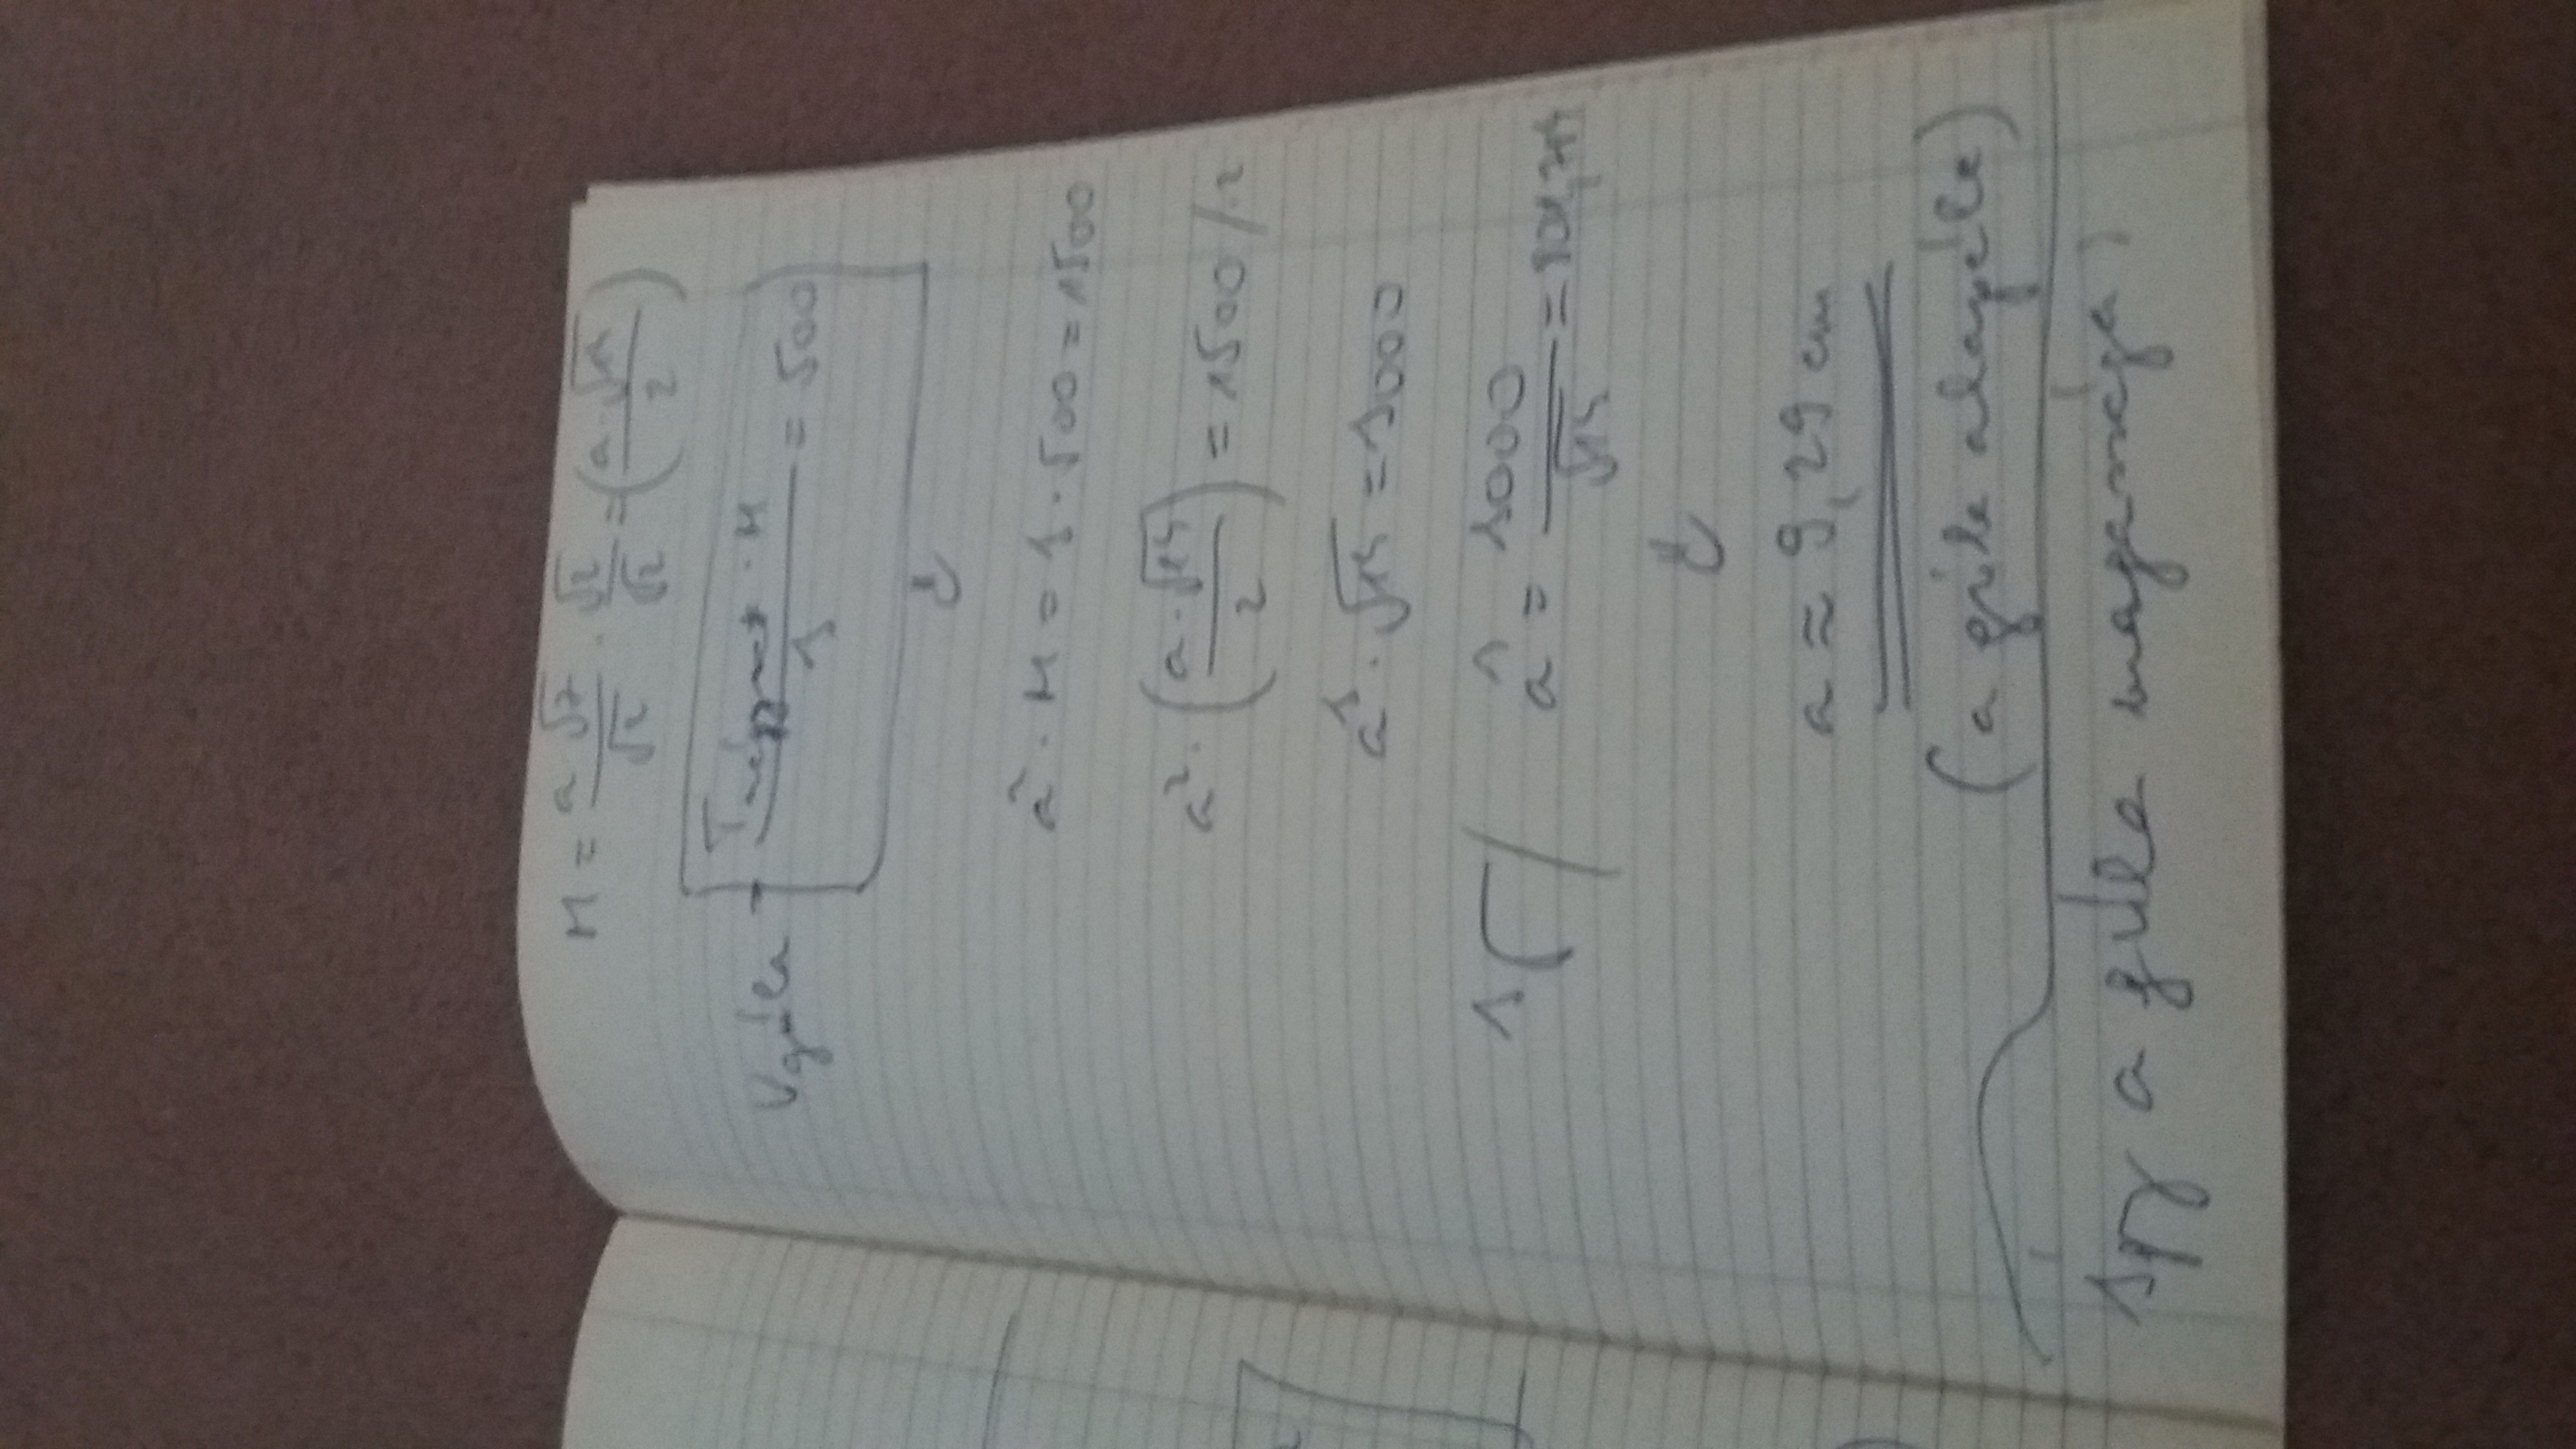 M = a·√7/√2 · √2/√2 = (a·√14/2)
Vgúla = Tnégyzet · M / 3 = 500
a² · M = 3 · 500 = 1500
a² · (a·√14/2) = 1500 /·2
a³ · √14 = 3000
3√ / a³ = 3000/√14 = 801,784
a ≈ 9,29 cm
(a gúla alapéle)
Így a gúla magassága: